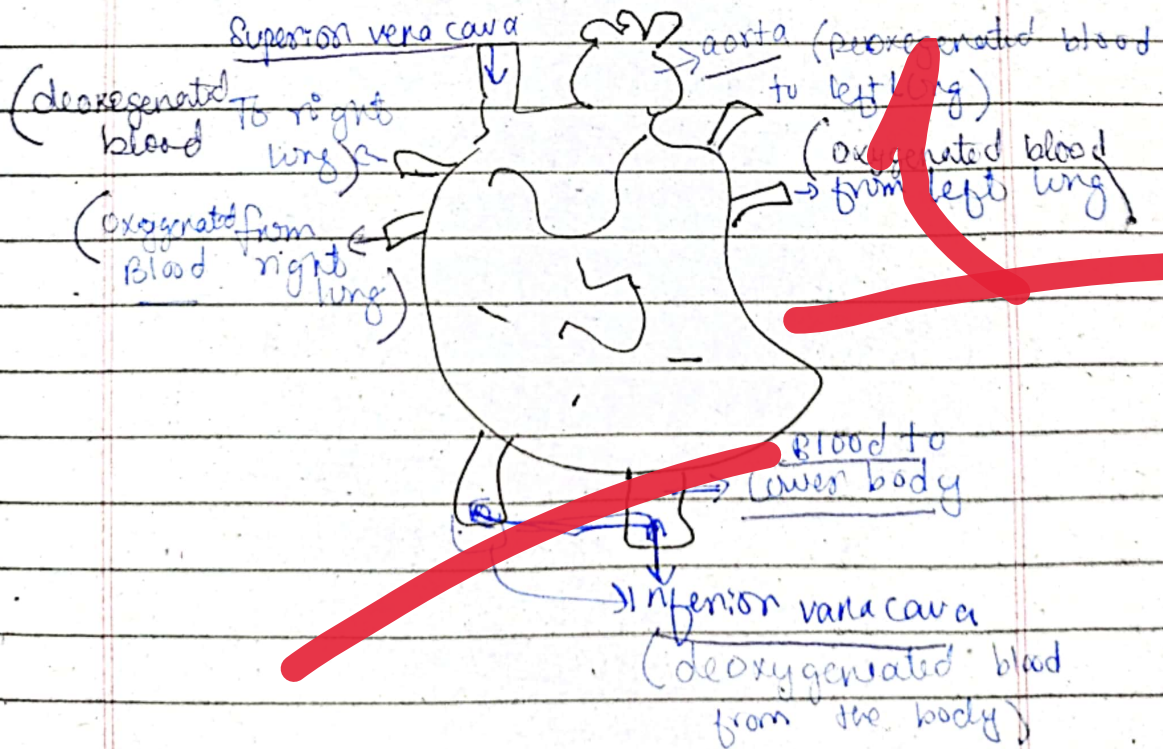 Superior vena cava
(deoxegenated To right
blood lung)
aorta (Deoxegenated blood
to left lung)
(oxygenated blood
from left lung)
(oxegenated from
Blood right
lung)
Blood to
Lower body
Inferior vana cava
(deoxygenated blood
from the body)